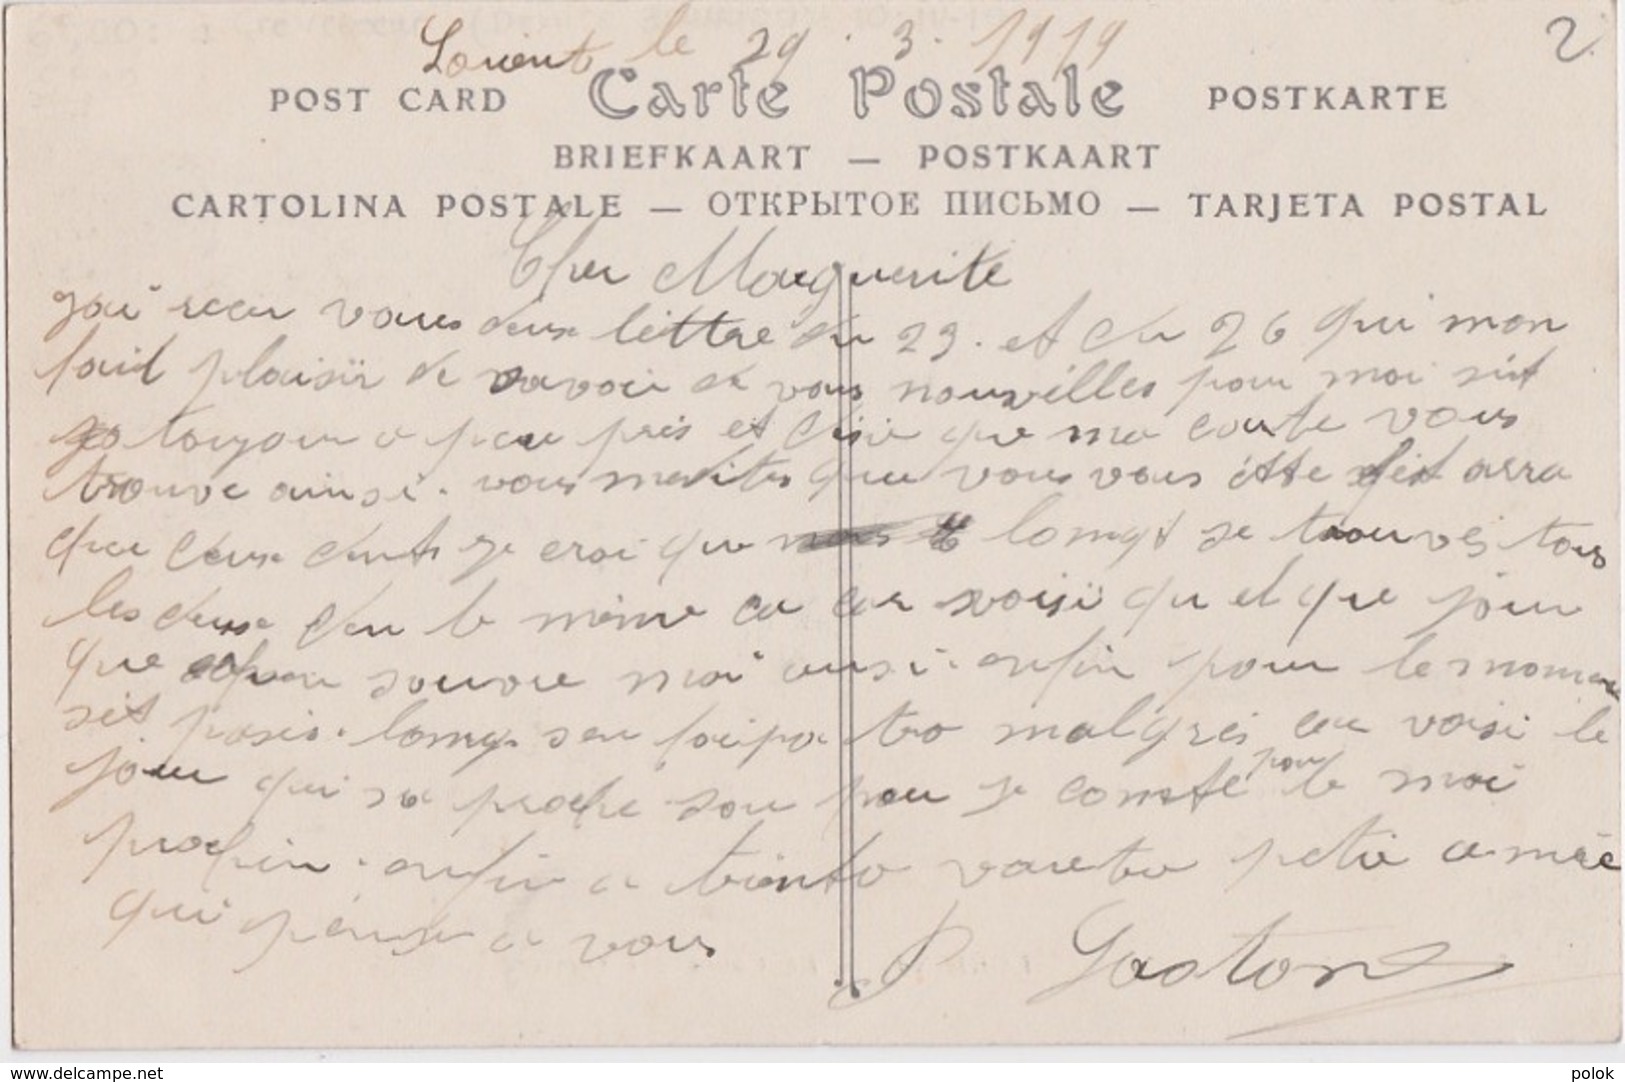 Lorient le 29. 3. 1919
2.
POST CARD Carte Postale POSTKARTE
BRIEFKAART — POSTKAART
CARTOLINA POSTALE — ОТКРЫТОЕ ПИСЬМО — TARJETA POSTAL
Cher Marguerite
jai recu vous deux lettre du 23. et du 26 qui mon
faid plaisir de savoir de vous nouvelles pour moi sit
toujour a peu près et que ma coute vous
trouve ainsi. vous madites que vous vous ette
que ceux je croi que long se trouvé tous
les deux le même ca car voisi quelque jour
que souvre moi ausi. enfin pour le
long sen faipa tro malgrés car voisi le
jour qui sa proche pour je comte pour le moi
prochin. enfin a bientô petit amie
qui pense a vous
P Gaston
www.delcampe.net
polok